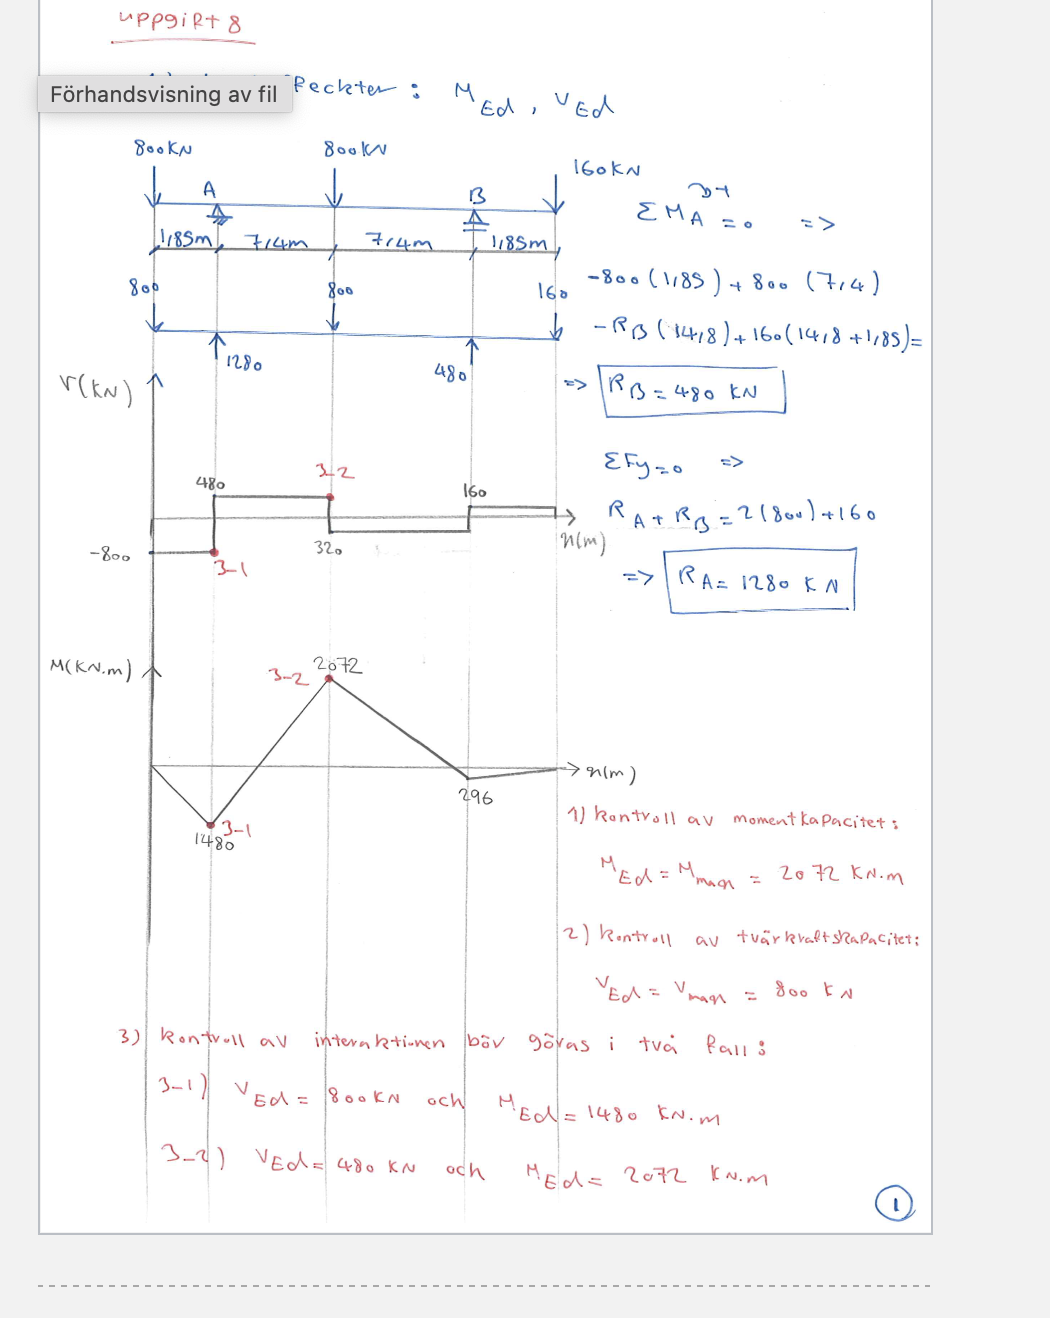 uppgift 8
Förhandsvisning av fil
: MEd, VEd
800KN
800KN
160KN
A
B
ΣMA = 0 =>
1,85m
7,4m
7,4m
1,85m
800
800
160
-800 (1,85) + 800 (7,4)
-RB (14,8) + 160(14,8+1,85)=
1280
480
=> RB = 480 KN
V(KN)
ΣFy=0 =>
480
3-2
160
RA + RB = 2(800) + 160
-800
320
x(m)
3-1
=> RA = 1280 KN
M(KN.m)
3-2
2072
x(m)
296
3-1
1480
1) kontroll av momentkapacitet:
MEd = Mmax = 2072 KN.m
2) kontroll av tvärkraftskapacitet:
VEd = Vmax = 800 KN
3) kontroll av interaktionen bör göras i två fall:
3-1) VEd = 800KN och MEd = 1480 KN.m
3-2) VEd = 480 KN och MEd = 2072 KN.m
1